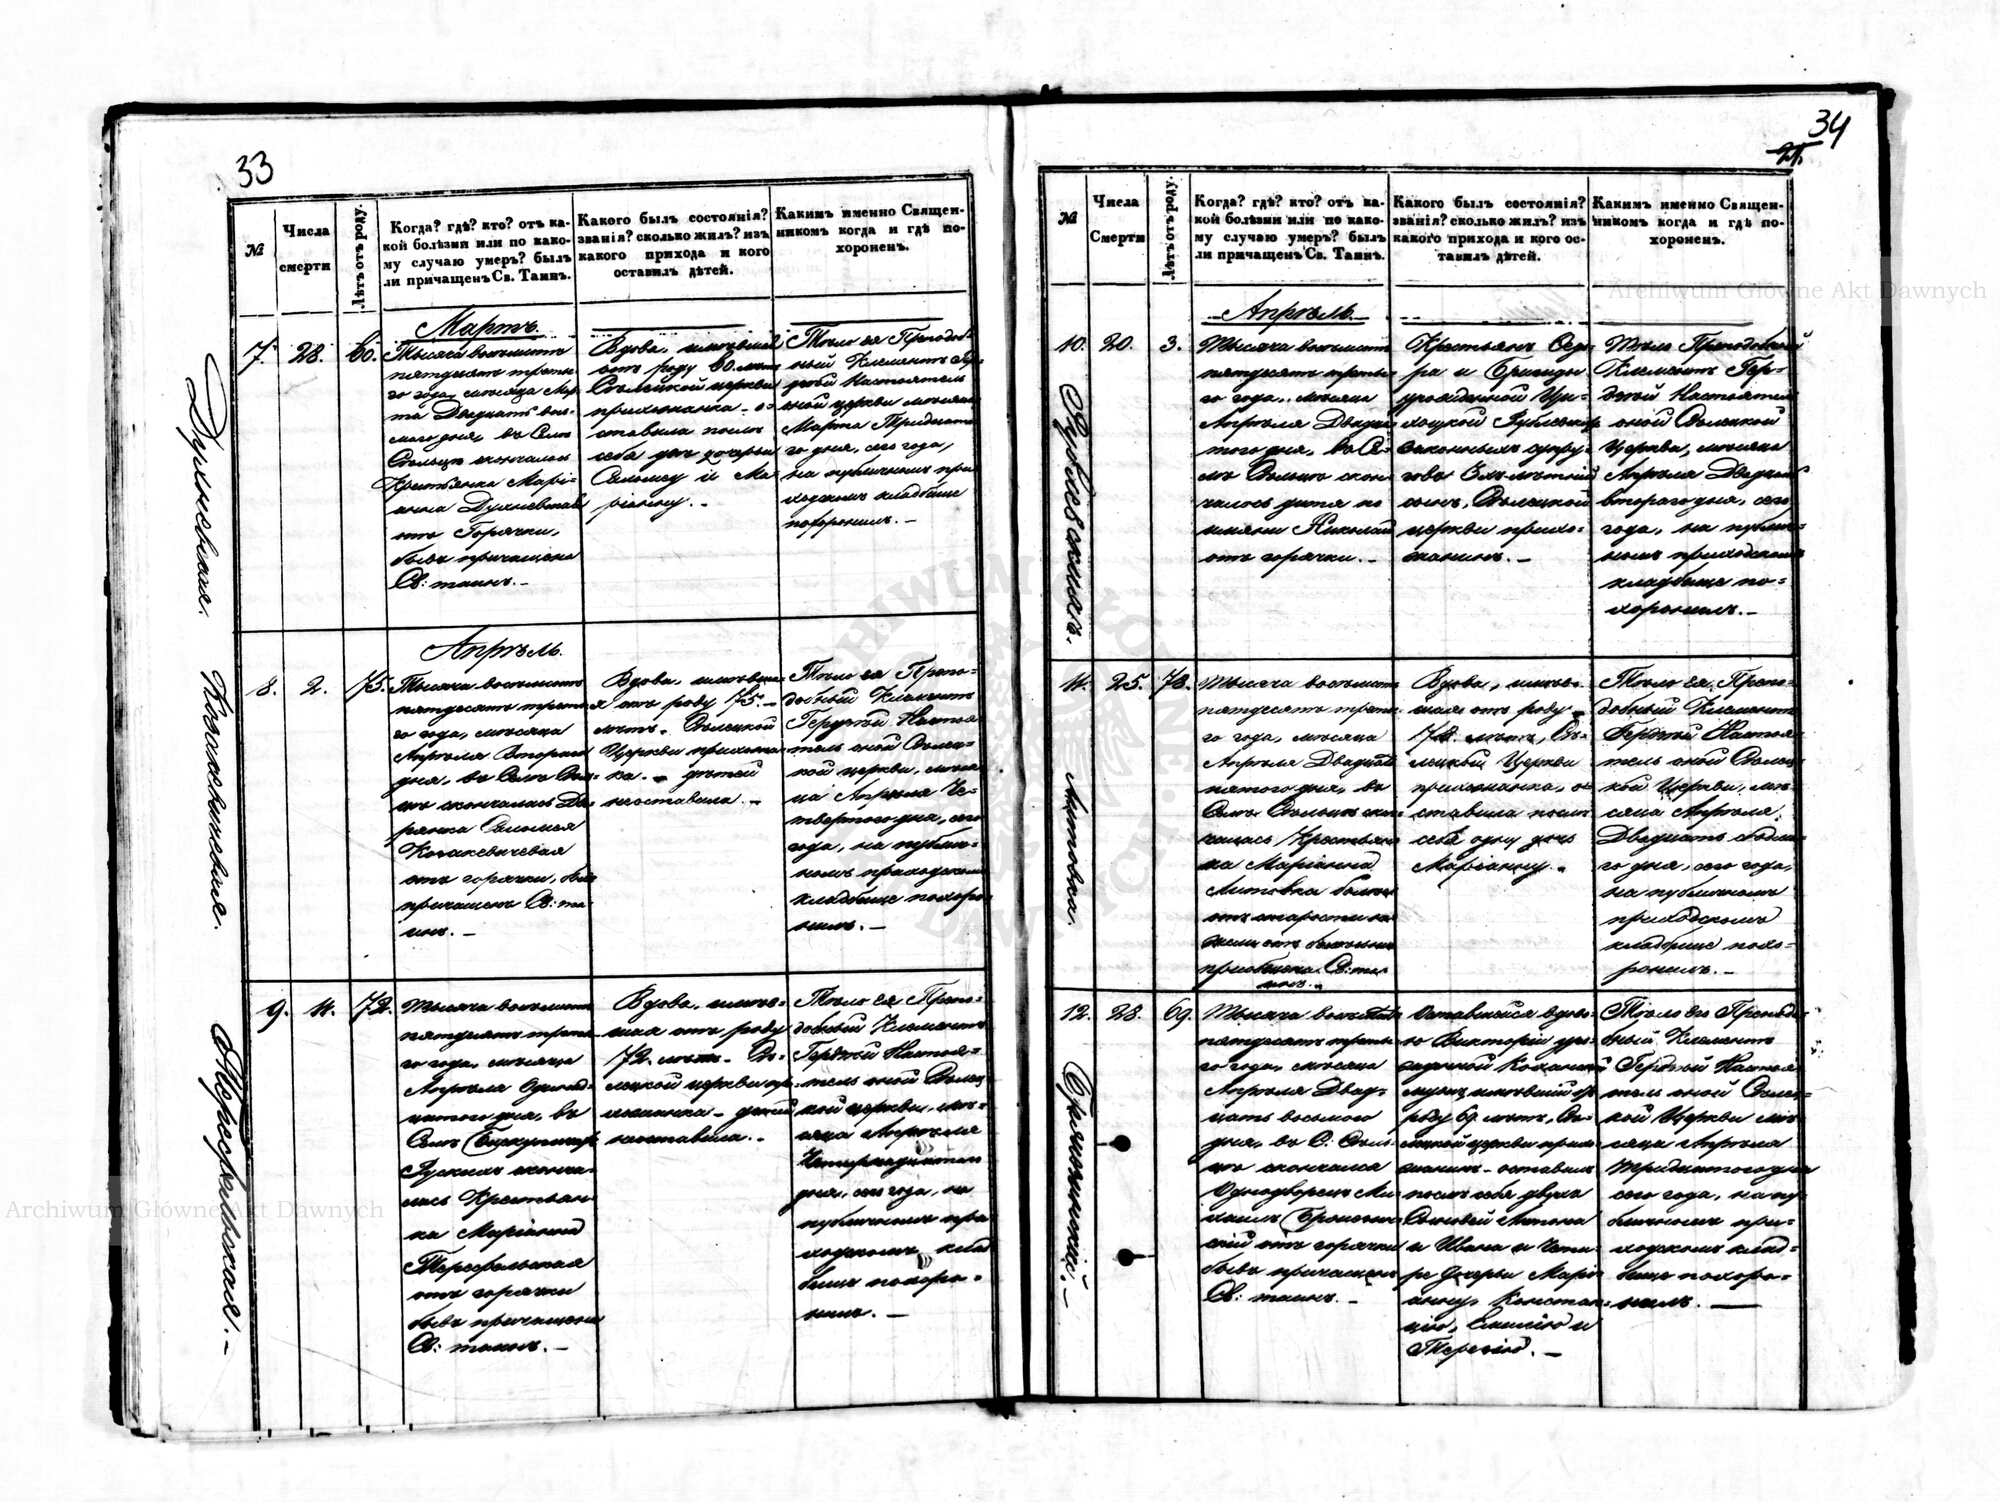 33
№
Числа
смерти
Лѣтъ отъ роду.
Когда? гдѣ? кто? отъ ка-
кой болѣзни или по како-
му случаю умеръ? былъ
ли причащенъ Св. Таинъ.
Какого былъ состоянія?
званія? сколько жилъ? изъ
какого прихода и кого
оставилъ дѣтей.
Какимъ именно Священ-
никомъ когда и гдѣ по-
хороненъ.
Мартъ.
7.
28.
60.
Тысяча восемьсотъ
пятдесятъ третья-
го года, мѣсяца Мар-
та Двадцать вось-
мого дня, въ Селѣ
скончалась
Крестьянка Марі-
анна
отъ Горячки,
бывъ причащена
Св: таинъ. –
Вдова, имѣвшая
отъ роду 60. лѣтъ
церкви
прихожанка – о-
ставила послѣ
себя двѣ дочерьи
Саломею и Ма-
ріанну. –
Тѣло ея Преподоб-
ный Климентъ Гер-
дзой Настоятель
оной церкви мѣсяца
Марта Тридцата-
го дня, сего года,
на публичномъ при-
ходскомъ кладбище
похоронилъ. –
Апрѣль.
8.
2.
75.
Тысяча восемьсотъ
пятдесятъ третья-
го года, мѣсяца
Апрѣля Втораго
дня, въ Селѣ
скончалась Дво-
рянка Саломея
Козакевичевая
отъ горячки, бывъ
причащена Св: та-
инъ. –
Вдова, имѣвша-
я отъ роду 75. –
лѣтъ.
Церкви прихожан-
ка. – дѣтей
неоставила. –
Тѣло ея Препо-
добный Климентъ
Гердзой Настоя-
тель оной
кой церкви, мѣся-
ца Апрѣля Че-
твертого дня, сего
года, на публич-
номъ приходскомъ
кладбище похоро-
нилъ. –
9.
11.
72.
Тысяча восемьсотъ
пятдесятъ третья-
го года, мѣсяца
Апрѣля Одинад-
цатого дня, въ
Селѣ
Рускихъ сконча-
лась Крестьян-
ка Маріанна
Терефельская
отъ горячки
бывъ причащена
Св: таинъ. –
Вдова, имѣв-
шая отъ роду
72. лѣтъ.
церкви при-
хожанка – дѣтей
неоставила. –
Тѣло ея Препо-
добный Климентъ
Гердзой Настоя-
тель оной
кой церкви, мѣ-
сяца Апрѣля
Четырнадцатаго
дня, сего года, на
публичномъ при-
ходскомъ клад-
бище похоро-
нилъ. –
Козакевичевая.
34
№
Числа
Смерти
Лѣтъ отъ роду.
Когда? гдѣ? кто? отъ ка-
кой болѣзни или по како-
му случаю умеръ? былъ
ли причащенъ Св. Таинъ.
Какого былъ состоянія?
званія? сколько жилъ? изъ
какого прихода и кого ос-
тавилъ дѣтей.
Какимъ именно Священ-
никомъ когда и гдѣ по-
хороненъ.
Апрѣль.
10.
20.
3.
Тысяча восемьсотъ
пятдесятъ третья-
го года, мѣсяца
Апрѣля Двадца-
того дня, въ Се-
лѣ скон-
чалось дитя по
имяни Николай
отъ горячки. –
Крестьянъ Ѳедо-
ра и Бригиды
урожденной
законныхъ супру-
говъ 3хъ лѣтній
сынъ,
церкви прихо-
жанинъ. –
Тѣло Преподобный
Климентъ Гер-
дзой Настоятель
оной
Церкви, мѣсяца
Апрѣля Двадцать
втораго дня, сего
года, на публич-
номъ приходскомъ
кладбище по-
хоронилъ. –
11.
25.
78.
Тысяча восемьсотъ
пятдесятъ третья-
го года, мѣсяца
Апрѣля Двадцать
пятого дня, въ
Селѣ скон-
чалась Крестьян-
ка Маріанна
Литовка
отъ старости
Св: та-
инъ. –
Вдова, имѣв-
шая отъ роду
78. лѣтъ,
Церкви
прихожанка, о-
ставила послѣ
себя одну дочь
Маріанну. –
Тѣло ея Препо-
добный Климентъ
Гердзой Настоя-
тель оной
кой Церкви, мѣ-
сяца Апрѣля
Двадцать седма-
го дня, сего года,
на публичномъ
приходскомъ
кладбище похо-
ронилъ. –
12.
28.
69.
Тысяча восемьсотъ
пятдесятъ третья-
го года, мѣсяца
Апрѣля Двад-
цать восьмого
дня, въ С.
скончался
Однодворецъ Ми-
хаилъ
отъ горячки
бывъ причащенъ
Св: таинъ. –
Оставшейся вдово-
ю Викторіи уро-
жденной
имѣвшій отъ
роду 69. лѣтъ,
церкви прихо-
жанинъ – оставилъ
послѣ себя двухъ
Сыновей Антона
и Ивана и Четы-
ре Дочерьи Марі-
анну, Констан-
цію, Емилію и
Терезію. –
Тѣло его Преподо-
бный Климентъ
Гердзой Настоя-
тель оной
кой Церкви мѣ-
сяца Апрѣля
Тридцатого дня
сего года, на пу-
бличномъ при-
ходскомъ клад-
бище похоро-
нилъ. –
Литовка.
Archiwum Główne Akt Dawnych
Archiwum Główne Akt Dawnych